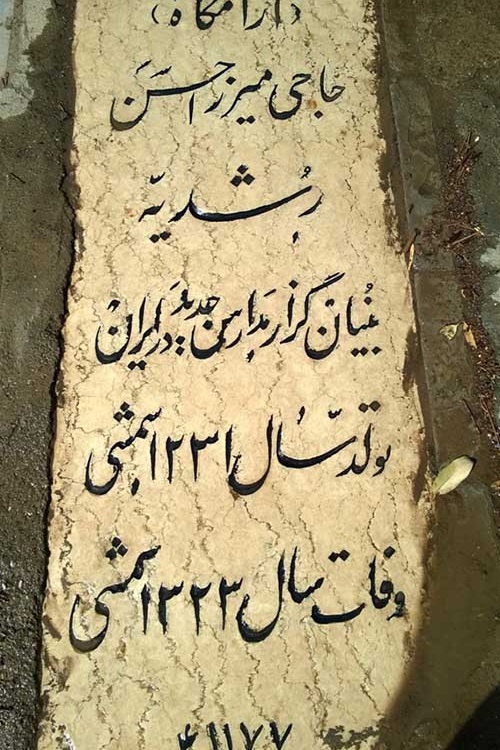 (آرامگاه)
حاجی میرزا حسن
رشدیّه
بنیان گزار مدارس جدید در ایران
تولد سال ۱۲۳۱ شمسی
وفات سال ۱۳۲۳ شمسی